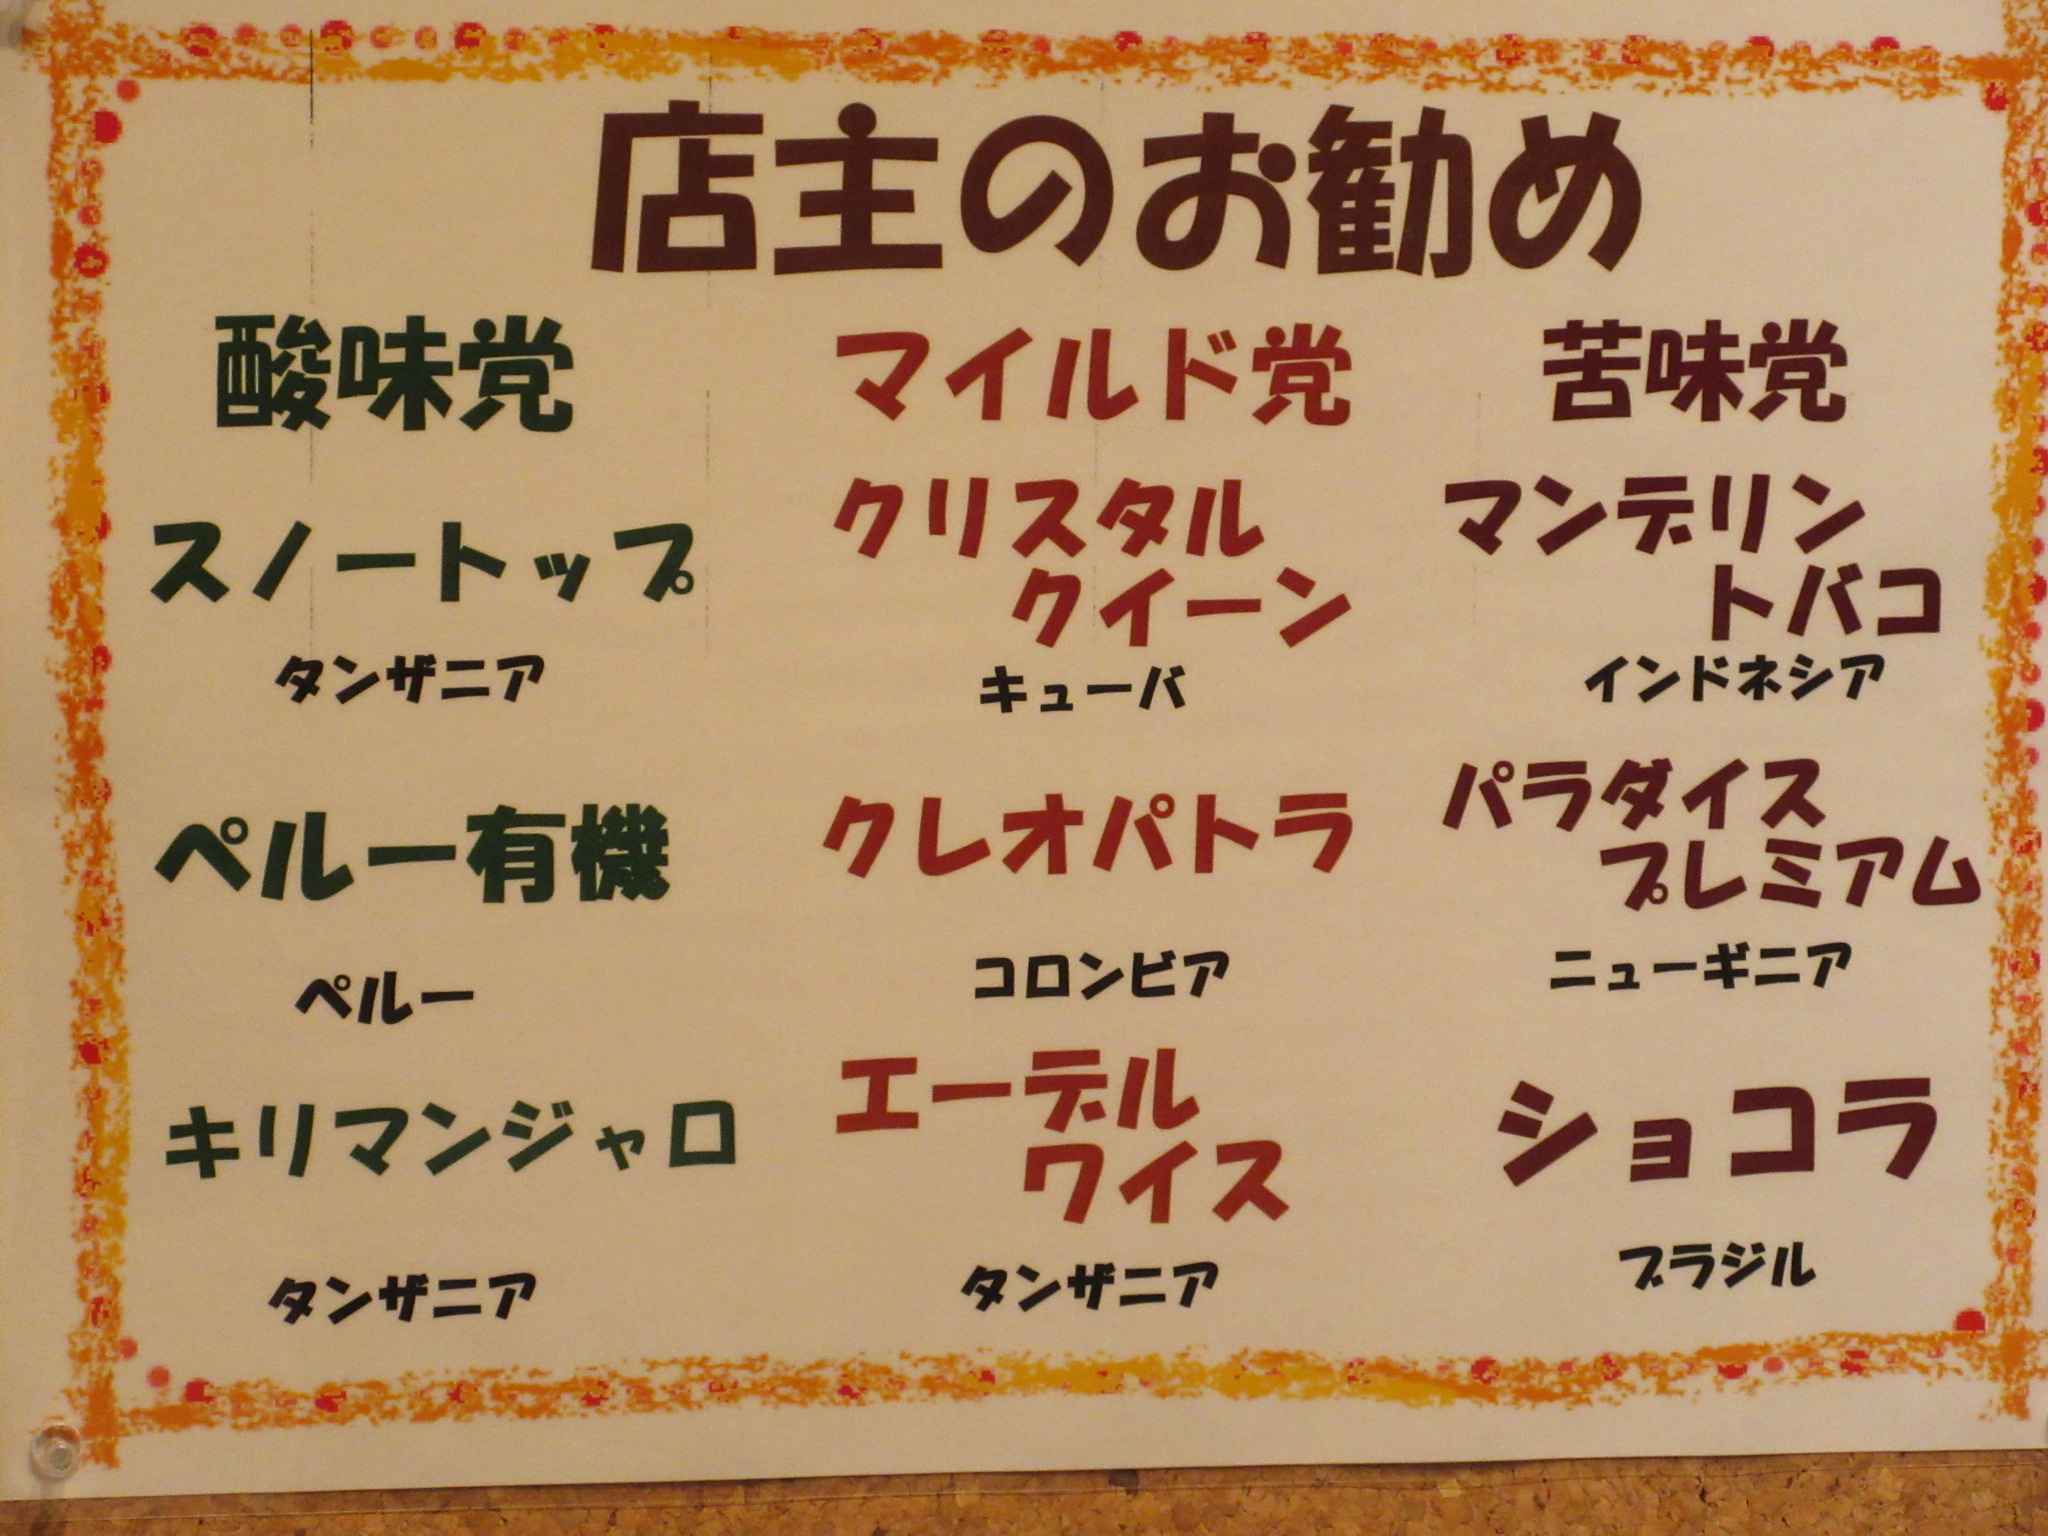 店主のお勧め
酸味党
スノートップ
タンザニア
ペルー有機
ペルー
キリマンジャロ
タンザニア
マイルド党
クリスタル
クイーン
キューバ
クレオパトラ
コロンビア
エーデル
ワイス
タンザニア
苦味党
マンデリン
トバコ
インドネシア
パラダイス
プレミアム
ニューギニア
ショコラ
ブラジル